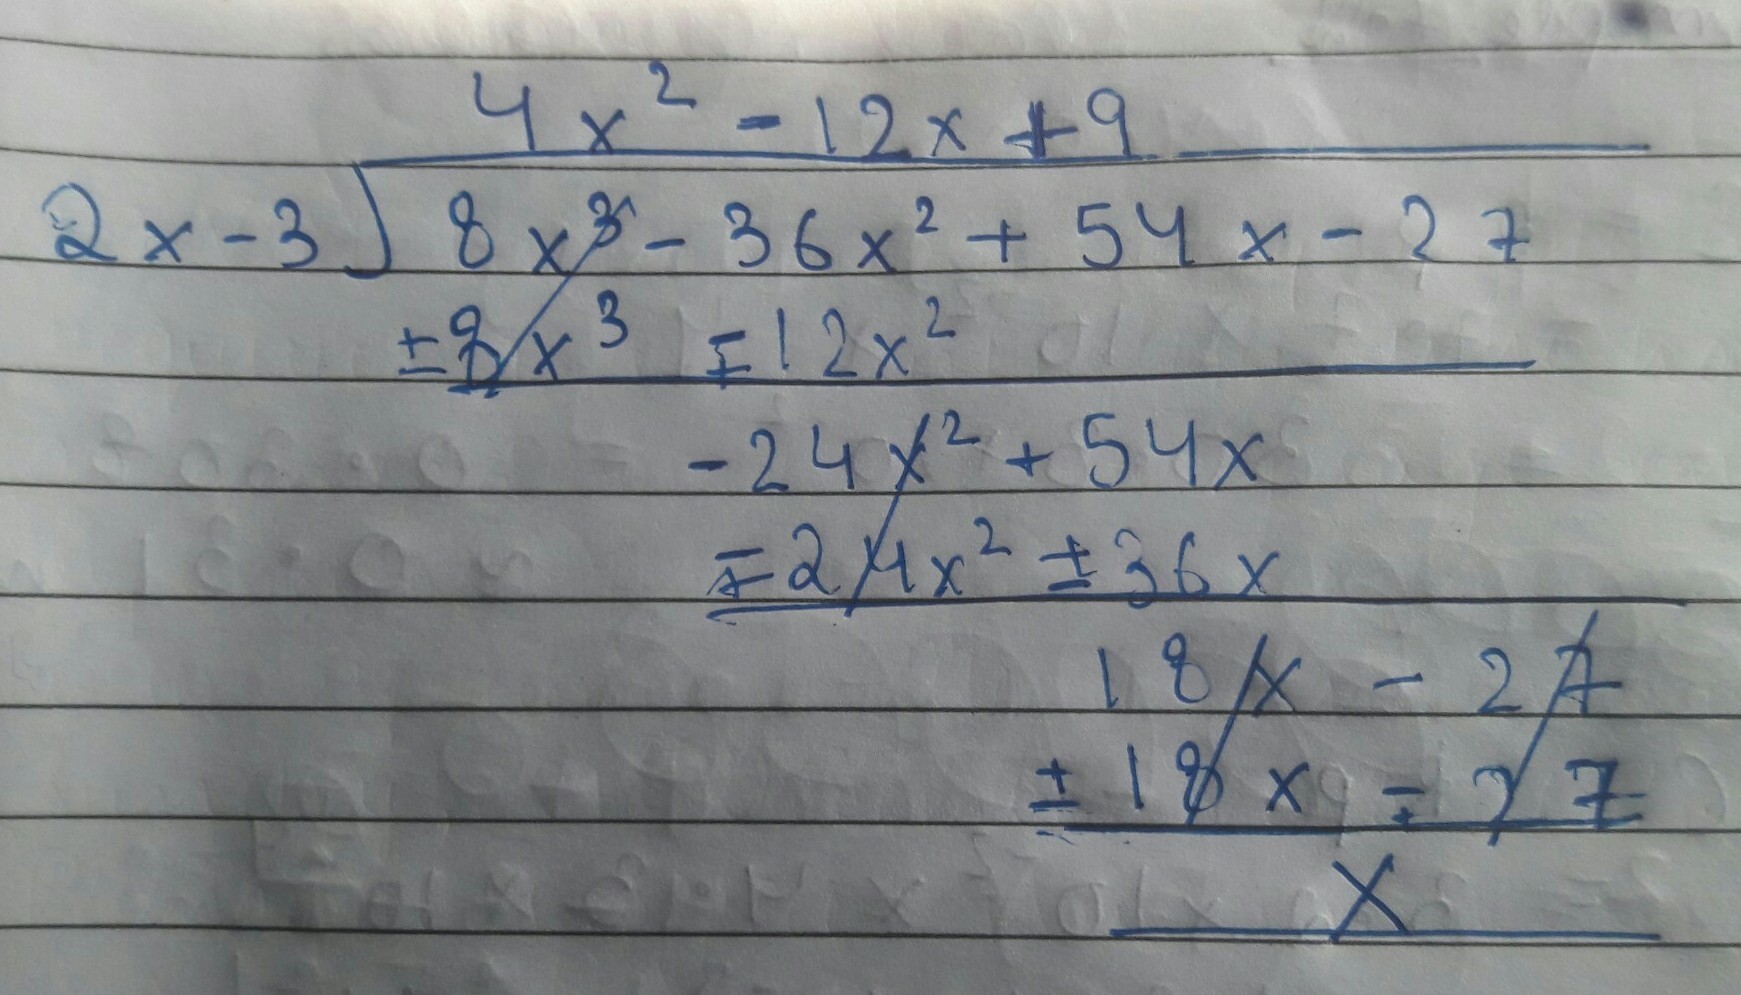 4x² - 12x + 9
2x - 3 ) 8x³ - 36x² + 54x - 27
± 8x³ ∓ 12x²
- 24x² + 54x
∓ 24x² ± 36x
18x - 27
± 18x ∓ 27
X